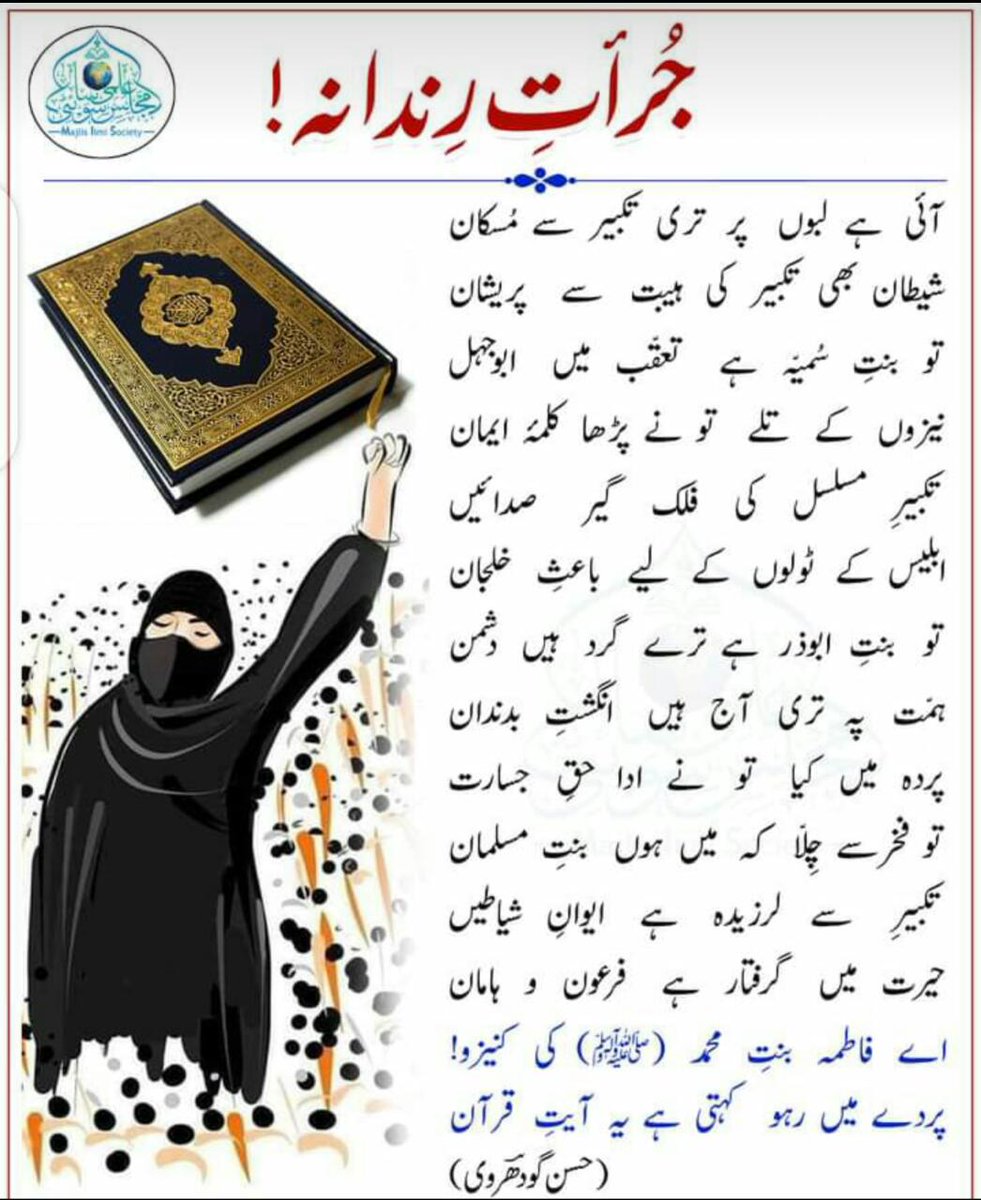 جُرأتِ رِندانہ!
مجلسِ علمی سوسائٹی
Majlis Ilmi Society
آئی ہے لبوں پر تری تکبیر سے مُسکان
شیطان بھی تکبیر کی ہیبت سے پریشان
تو بنتِ سُمیّہ ہے تعقّب میں ابوجہل
نیزوں کے تلے تو نے پڑھا کلمۂ ایمان
تکبیرِ مسلسل کی فلک گیر صدائیں
ابلیس کے ٹولوں کے لیے باعثِ خلجان
تو بنتِ ابوذر ہے ترے گرد ہیں دشمن
ہمّت پہ تری آج ہیں انگشتِ بدندان
پردہ میں کیا تو نے ادا حقِ جسارت
تو فخر سے چِلّا کہ میں ہوں بنتِ مسلمان
تکبیرِ سے لرزیدہ ہے ایوانِ شیاطیں
حیرت میں گرفتار ہے فرعون و ہامان
اے فاطمہ بنتِ محمد (ﷺ) کی کنیزو!
پردے میں رہو کہتی ہے یہ آیتِ قرآن
(حسن گودھروی)